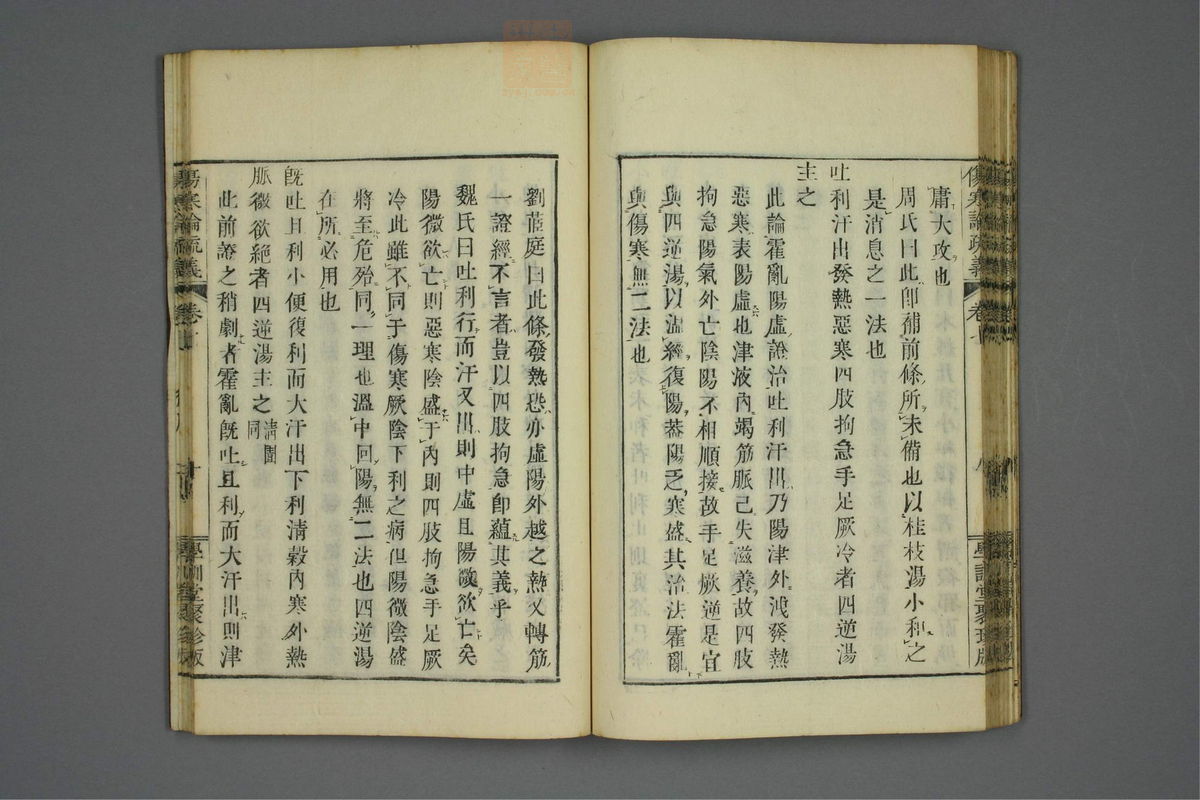 傷寒論疏義
卷
學訓堂聚珍版
庸大攻也
周氏曰此卽補前條所未備也以桂枝湯小和之
是消息之一法也
吐利汗出發熱惡寒四肢拘急手足厥冷者四逆湯
主之
此論霍亂陽虛證治吐利汗出乃陽津外洩發熱
惡寒表陽虛也津液內竭筋脈己失滋養故四肢
拘急陽氣外亡陰陽不相順接故手足厥逆是宜
與四逆湯以溫經復陽蓋陽乏寒盛其治法霍亂
與傷寒無二法也
劉茝庭曰此條發熱恐亦虛陽外越之熱又轉筋
一證經不言者豈以四肢拘急卽蘊其義乎
魏氏曰吐利行而汗又出則中虛且陽微欲亡矣
陽微欲亡則惡寒陰盛于內則四肢拘急手足厥
冷此雖不同于傷寒厥陰下利之病但陽微陰盛
將至危殆同一理也溫中回陽無二法也四逆湯
在所必用也
旣吐且利小便復利而大汗出下利清穀內寒外熱
脈微欲絕者四逆湯主之 清國同
此前證之稍劇者霍亂旣吐且利而大汗出則津
傷寒論疏義
卷
學訓堂聚珍版